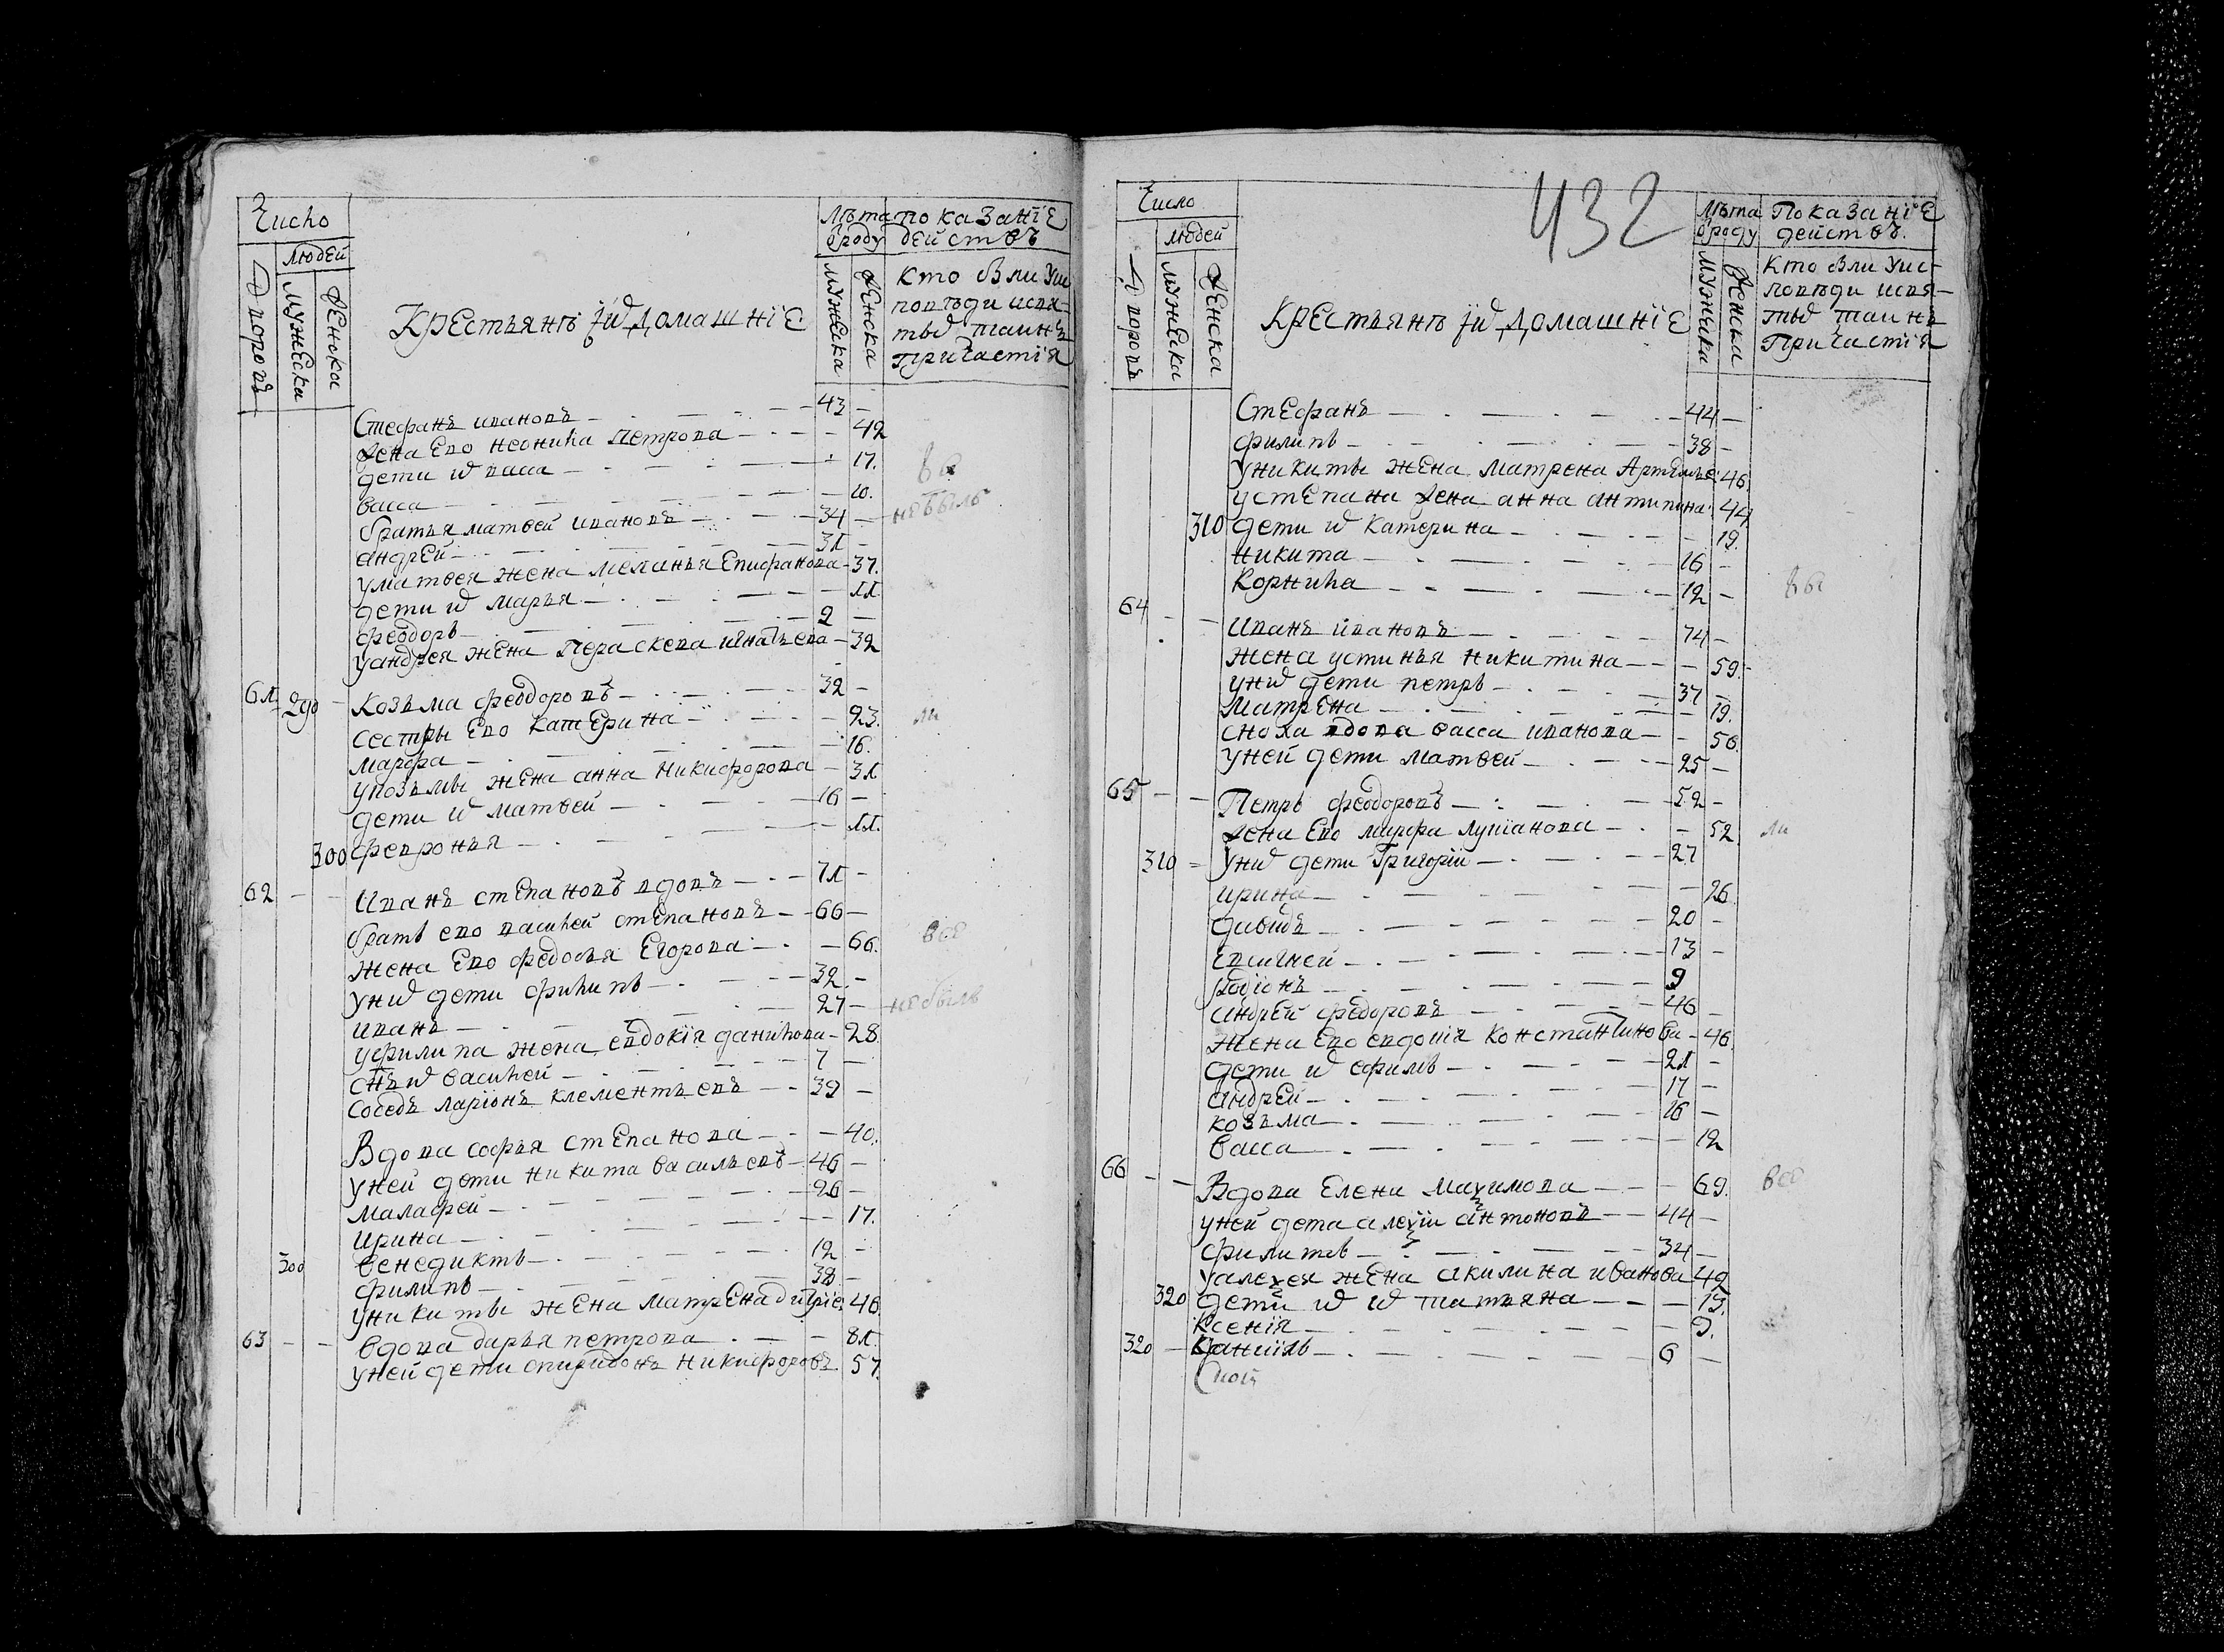 Число
людей
Дворовъ
Мужеска
Женска
Крестьянъ їѡ домашнїе
Лѣта
ѿроду
Мужеска
Женска
показанїе
действъ
Кто были уис
поведи исвя-
тыѡ таинъ
Причастїя
Стефанъ ивановъ 43
Жена Ево неонила Петрова 42
дети ѡ васса 17.
Васса 10.
братья матвей ивановъ 34 небылъ
андрей 31
уматвея жена меланья Епифанова 37.
дети ѡ марья 11
феодоръ 2
уандрея жена Пераскева игнатьева 32
61 290 Козьма феодоровъ 32
сестры Ево катерина 23.
марфа 16.
укозьмы жена анна никифорова 31
дети ѡ матвей 16
300 февронья 11.
62 Иванъ степановъ вдовъ 71
братъ ево василей степановъ 66
жена Ево федосья Егорова 66. все
униѡ дети филипъ 32.
иванъ 27 небылъ
уфилипа жена евдокїя данилова 28
снъ ѡ василей 7
соседъ ларїонъ клементьевъ 39
Вдова софья степанова 40.
уней дети никита васильевъ 46
малафей 26
ирина 17.
300 венедиктъ 12
филипъ 38
уникиты жена матрена дмтрїе 46
63 вдова дарья петрова 81
уней дети спиридонъ никифоровъ 57.
432
Число
людей
Дворовъ
Мужеска
Женска
Крестьянъ їѡ домашнїе
Лѣта
ѿроду
Мужеска
Женска
Показанїе
действъ.
Кто были уис-
поведи исвя-
тыѡ таинъ
Причастїя
Стефанъ 44
филипъ 38
уникиты жена матрена Артемье 46.
устепана жена анна антипина 44
310 дети ѡ катерина 19.
никита 16
Корнила 12
64 Иванъ ивановъ 74
жена устинья никитина 59.
униѡ дети петръ 37
Матрена 19.
сноха вдова васса иванова 56.
уней дети матвей 25
65 Петръ феодоровъ 52
жена Ево марфа лукїанова 52
310 униѡ дети Григорїи 27
ирина 26
давидъ 20
Евсигней 13
родїонъ 9
андрей федоровъ 46
жена Ево евдокїя константинова 46.
дети ѡ ефимъ 21
андрей 17
козьма 16
васса 12
66 Вдова Елена Маѯимова 69. все
уней дета алеѯїи антоновъ 44
филипъ 34
уалеѯея жена акилина иванова 42
320 дети ѡ ѡ татьяна 13.
Ксенїя 9.
320 Данїилъ 6